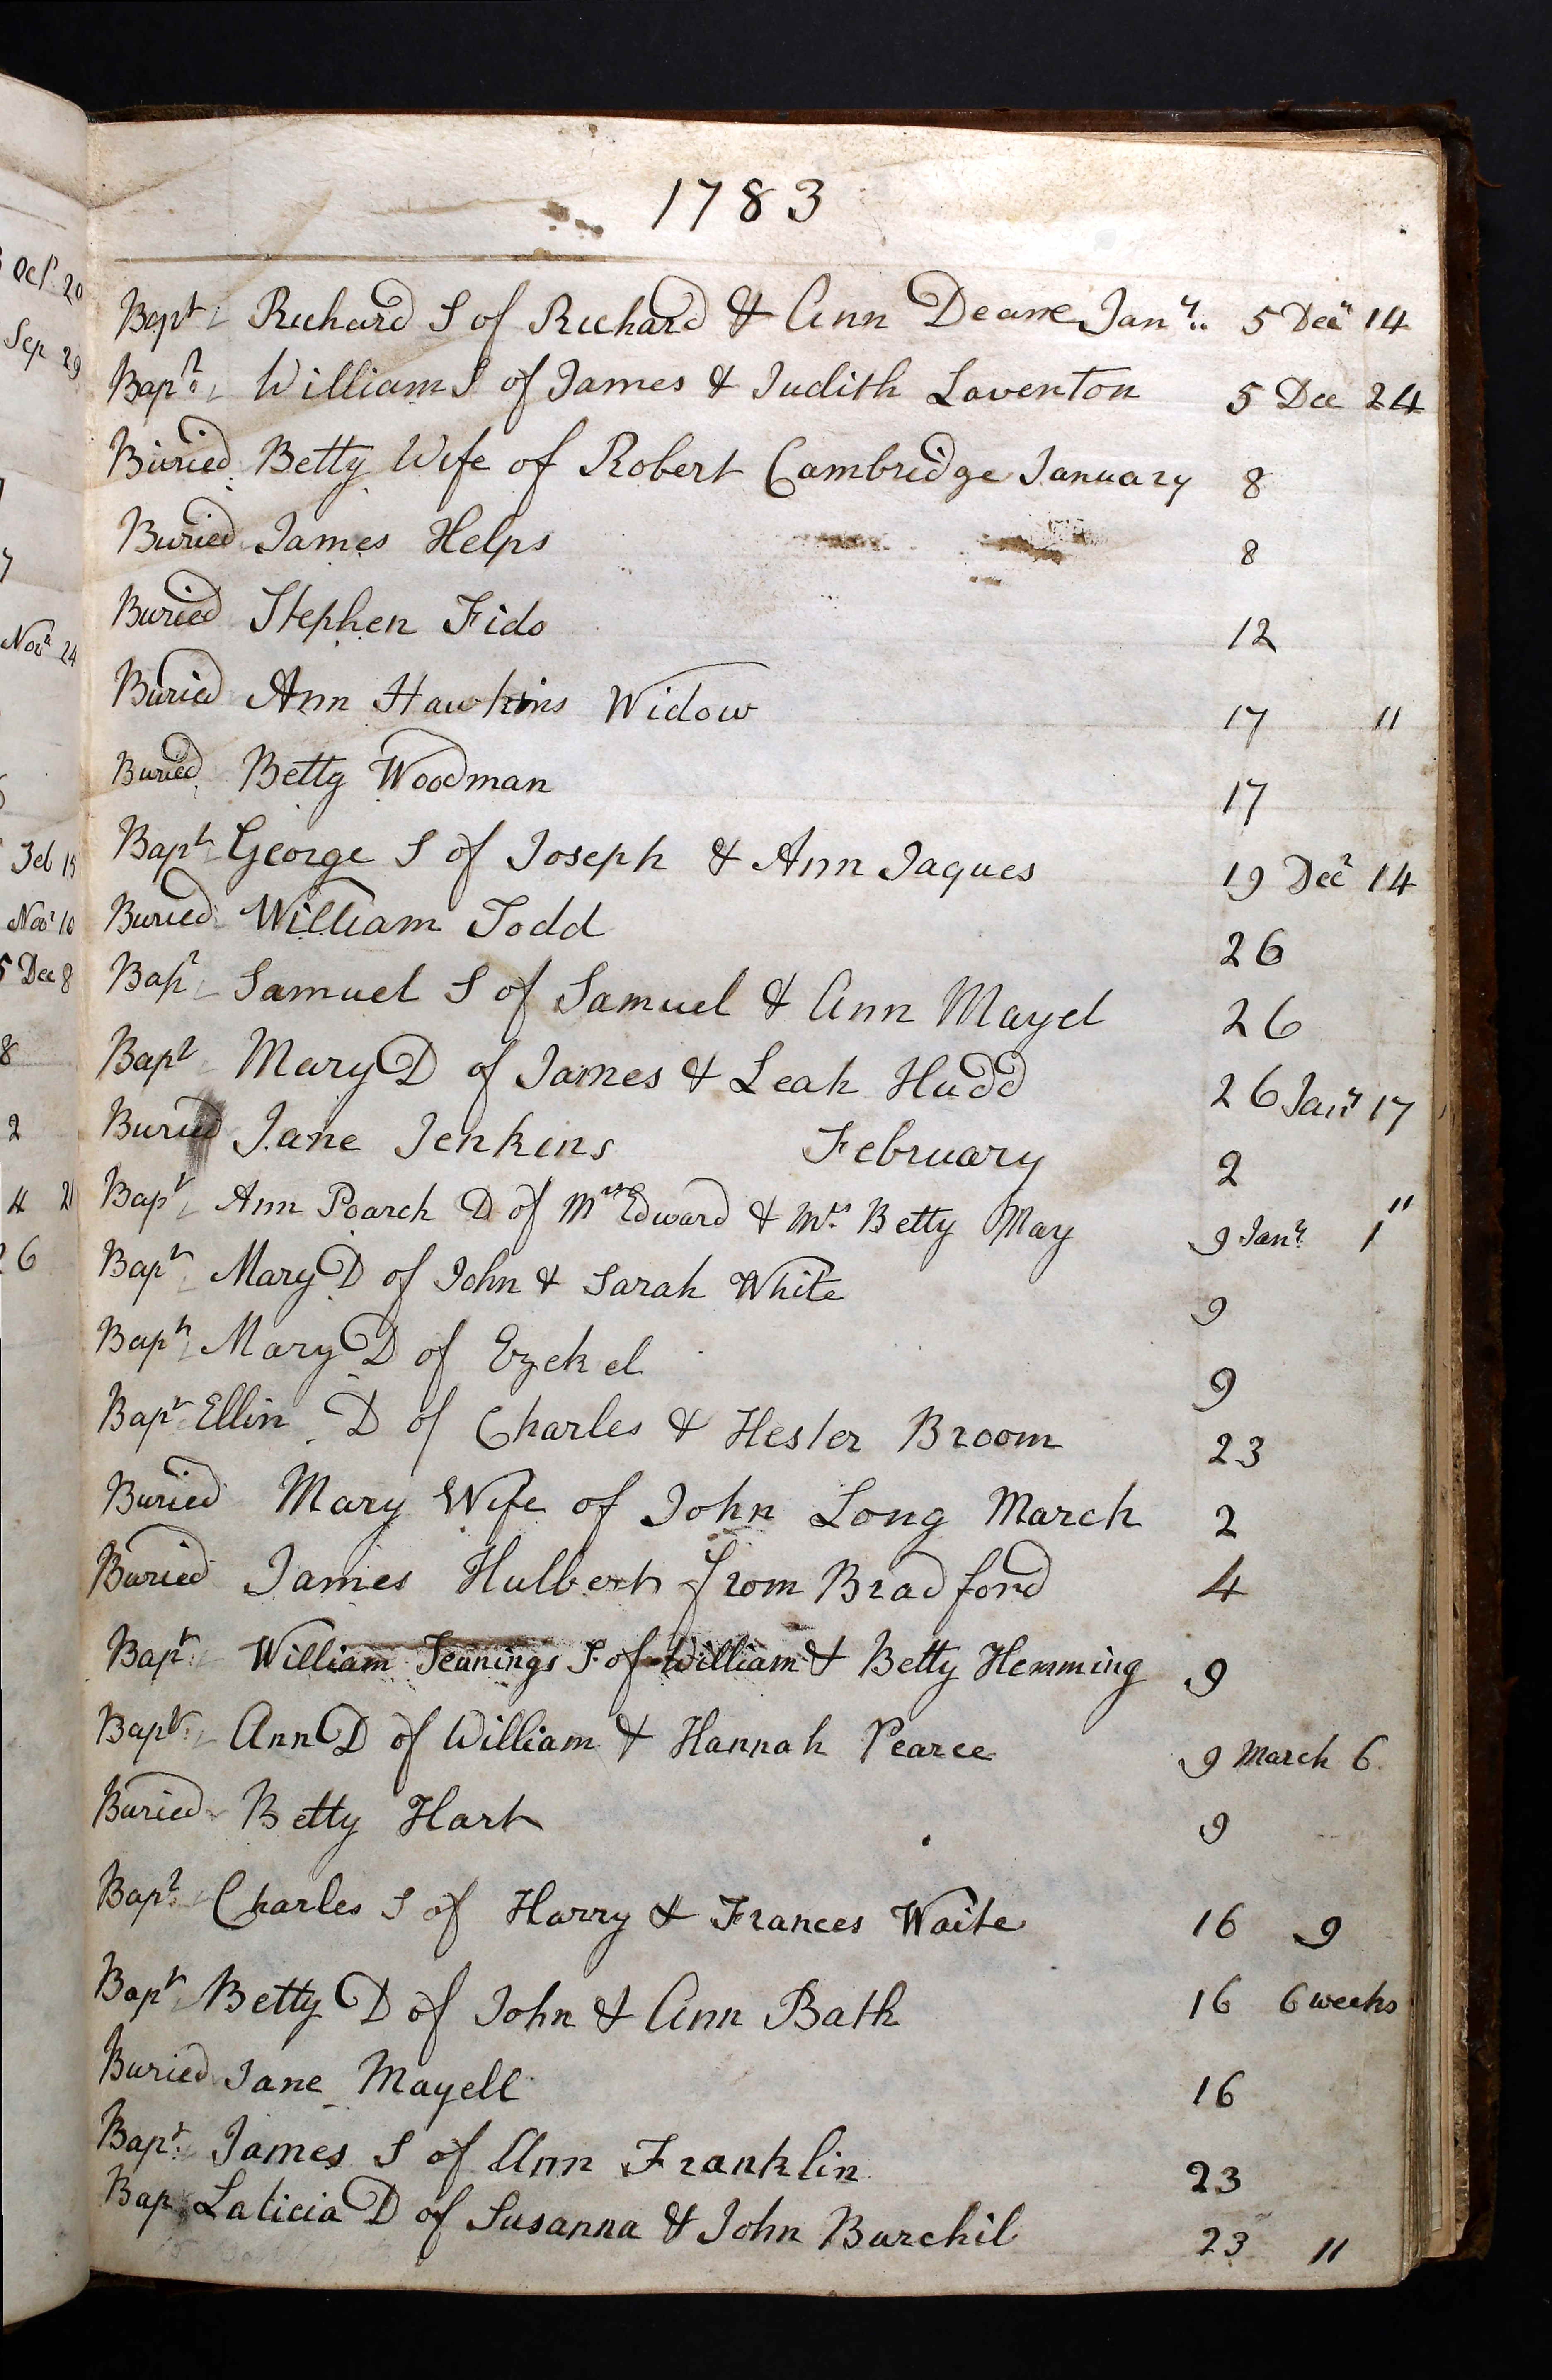 1783
Bapt Richard S of Richard & Ann Deane Jany. 5 Decr 14
Bapt William S of James & Judith Laverton 5 Dec 24
Buried Betty Wife of Robert Cambridge January 8
Buried James Helps 8
Buried Stephen Fido 12
Buried Ann Hawkins Widow 17 11
Buried Betty Woodman 17
Bapt George S of Joseph & Ann Jaques 19 Decr 14
Buried William Todd 26
Bapt Samuel S of Samuel & Ann Mayel 26
Bapt Mary D of James & Leah Hudd 26 Jany 17
Buried Jane Jenkins February 2
Bapt Ann Poarch D of Mr Edward & Mrs Betty May 9 Jany. 1
Bapt Mary D of John & Sarah White 9
Bapt Mary D of Ezekel 9
Bapt Ellin D of Charles & Hester Broom 23
Buried Mary Wife of John Long March 2
Buried James Hulbert from Bradford 4
Bapt William Jennings S of William & Betty Hemming 9
Bapt Ann D of William & Hannah Pearce 9 March 6
Buried Betty Hart 9
Bapt Charles S of Harry & Frances Waite 16 9
Bapt Betty D of John & Ann Bath 16 6 weeks
Buried Jane Mayell 16
Bapt James S of Ann Franklin 23
Bap Laticia D of Susanna & John Burchil 23 11
Oct 20
Sep 29
Novr 24
Feb 15
Novr 10
5 Dec 8
8
2
4 21
26